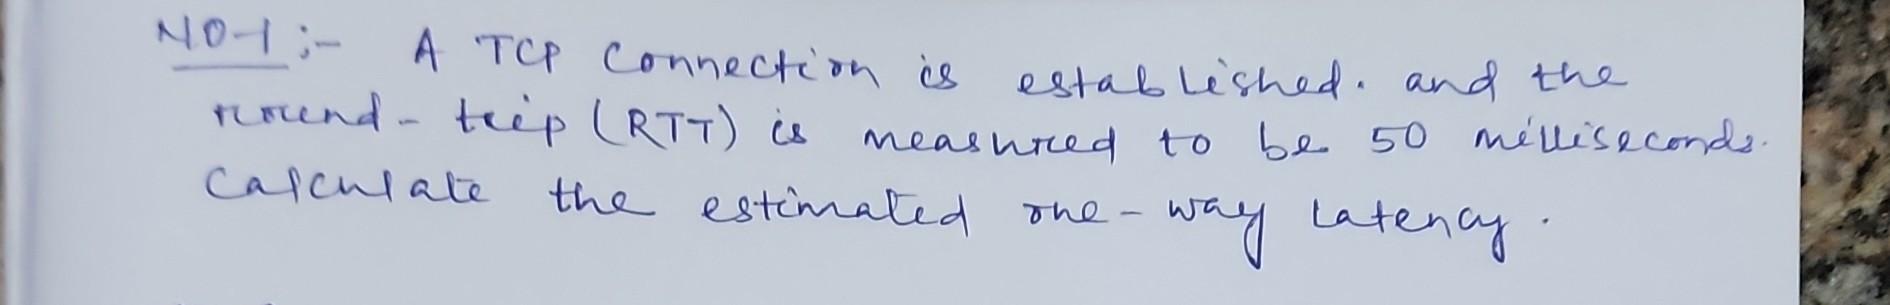 NO-1:- A TCP connection is established. and the
round-trip (RTT) is measured to be 50 milliseconds.
Calculate the estimated one-way latency.